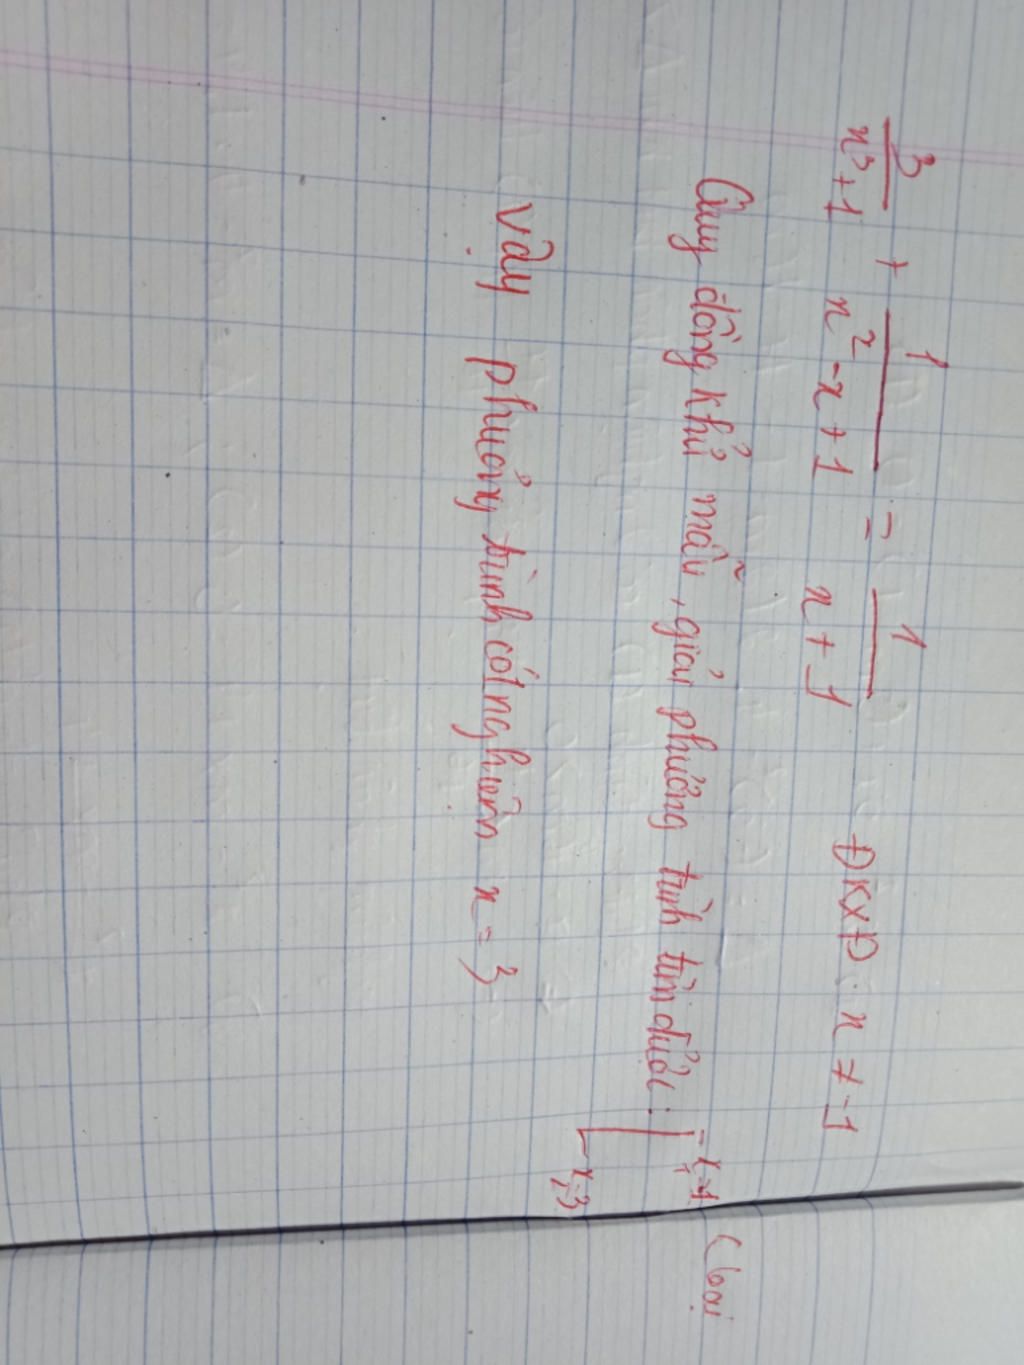 3/(x³+1) + 1/(x²-x+1) = 1/(x+1) ĐKXĐ: x ≠ -1
Quy đồng khử mẫu, giải phương trình tìm được: [x₁=-1 (loại
x₂=3
Vậy phương trình có 1 nghiệm x = 3